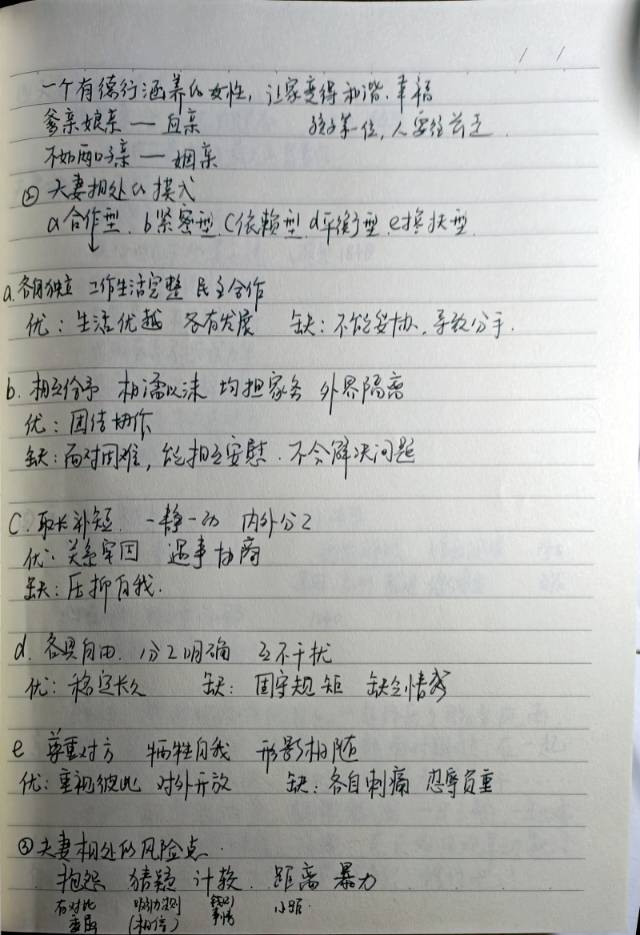 一个有德行涵养的女性，让家变得和谐.幸福
爹亲娘亲 — 血亲
不如两口子亲 — 姻亲
② 夫妻相处的模式
a合作型. b紧密型. C依赖型. d平衡型. e
a. 各自独立 工作生活完整 民主合作
优：生活优越 各有发展 缺：不能妥协.导致分手.
b. 相互给予 相濡以沫 均担家务 外界隔离
优：团结协作
缺：面对困难，能相互安慰.不会解决问题
C. 取长补短. 一静一动 内外分工
优：关系牢固 遇事协商
缺：压抑自我.
d. 各具自由. 分工明确 互不干扰
优：稳定长久 缺：固守规矩 缺乏情
e 尊重对方 牺牲自我 形影相随
优：重视彼此 对外开放 缺：各自刺痛 忍辱负重
③夫妻相处的风险点.
抱怨 猜疑 计较. 距离 暴力
有对比 吸引力法则
委屈 (相信) 事情 小距.